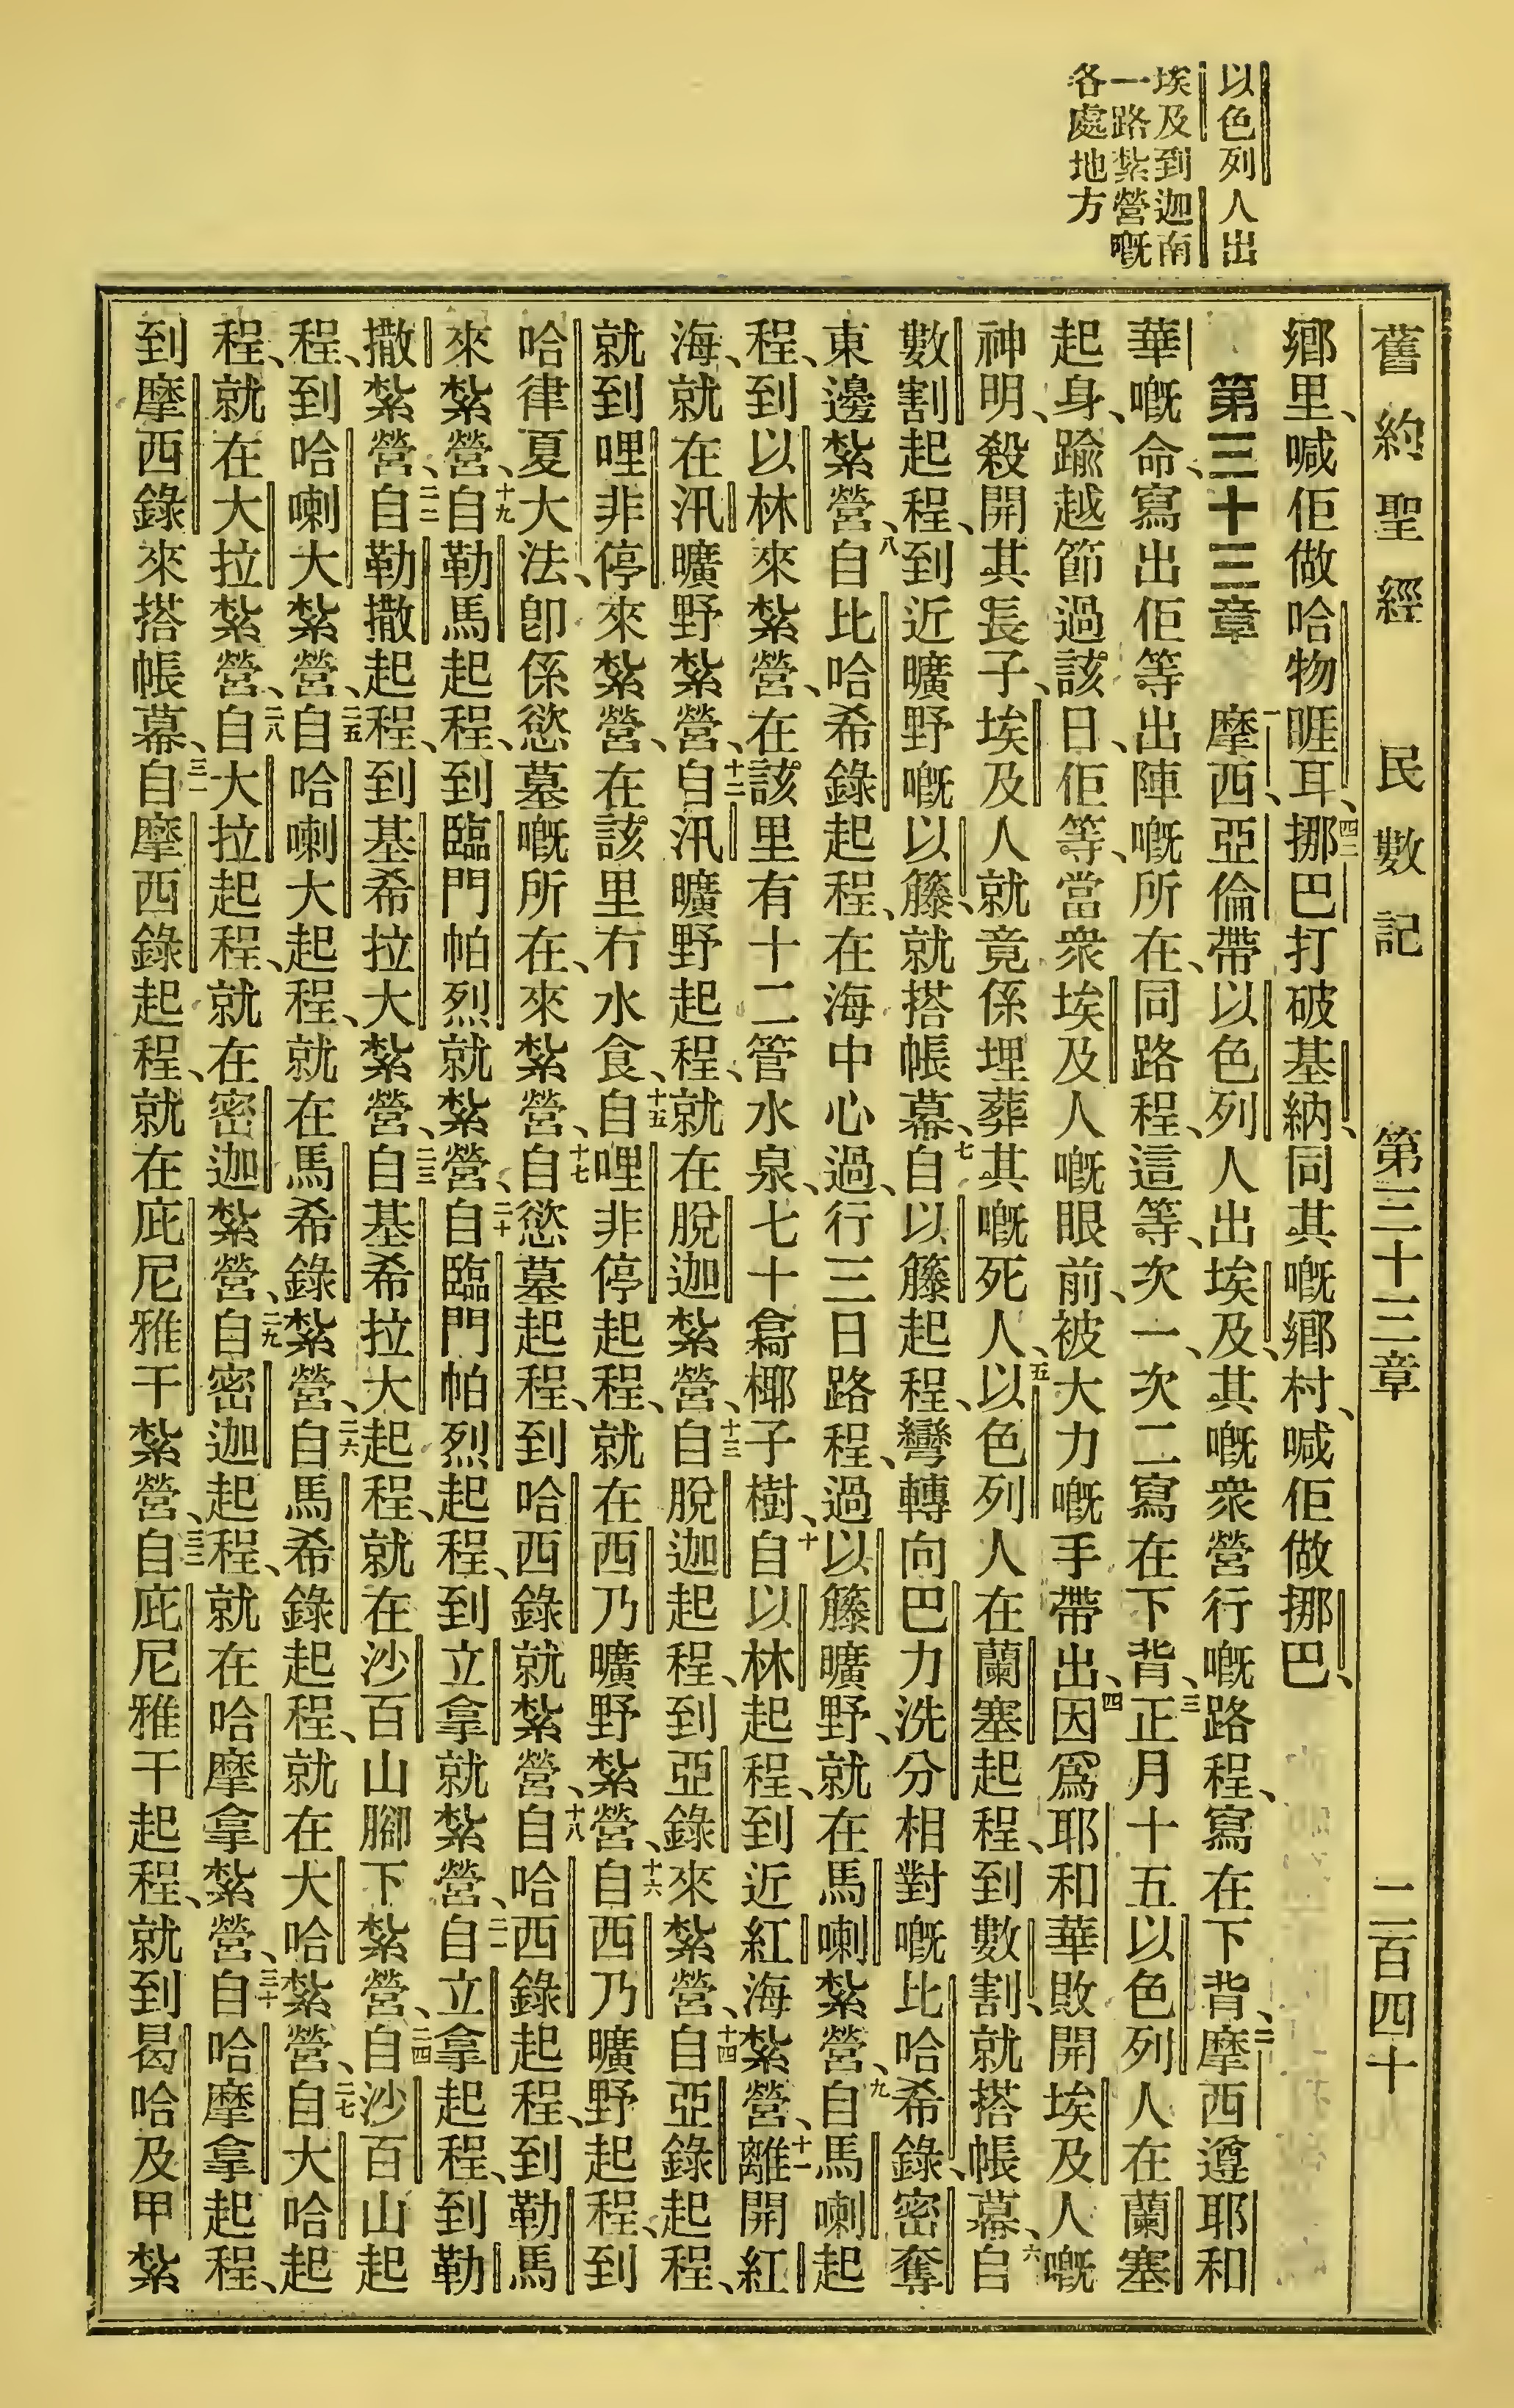 以色列人出
埃及到迦南
一路紮營嘅
各處地方
舊約聖經 民數記 第三十三章 二百四十
鄉里、喊佢做哈物睚耳、四二挪巴打破基納、同其嘅鄉村、喊佢做挪巴、
第三十三章 一摩西、亞倫帶以色列人出埃及、其嘅衆營行嘅路程、寫在下背、二摩西遵耶和
華嘅命、寫出佢等出陣嘅所在、同路程、這等、次一、次二寫在下背、三正月十五以色列人在蘭塞
起身、踰越節過該日、佢等、當衆埃及人嘅眼前、被大力嘅手帶出、四因爲耶和華敗開埃及人嘅
神明、殺開其長子、埃及人就竟係埋葬其嘅死人、五以色列人在蘭塞起程、到數割、就搭帳幕、六自
數割起程、到近曠野嘅以籐、就搭帳幕、七自以籐起程、彎轉向巴力洗分相對嘅比哈希錄、密奪
東邊紮營、八自比哈希錄起程、在海中心過、行三日路程、過以籐曠野、就在馬喇紮營、九自馬喇起
程、到以林來紮營、在該里有十二管水泉、七十樖椰子樹、十自以林起程、到近紅海紮營、十一離開紅
海、就在汛曠野紮營、十二自汛曠野起程、就在脫迦紮營、十三自脫迦起程、到亞錄來紮營、十四自亞錄起程、
就到哩非停來紮營、在該里冇水食、十五自哩非停起程、就在西乃曠野紮營、十六自西乃曠野起程、到
哈律夏大法、卽係慾墓嘅所在、來紮營、十七自慾墓起程、到哈西錄就紮營、十八自哈西錄起程、到勒馬
來紮營、十九自勒馬起程、到臨門帕烈就紮營、二十自臨門帕烈起程、到立拿就紮營、二一自立拿起程、到勒
撒紮營、二二自勒撒起程、到基希拉大紮營、二三自基希拉大起程、就在沙百山腳下紮營、二四自沙百山起
程、到哈喇大紮營、二五自哈喇大起程、就在馬希錄紮營、二六自馬希錄起程、就在大哈紮營、二七自大哈起
程、就在大拉紮營、二八自大拉起程、就在密迦紮營、二九自密迦起程、就在哈摩拿紮營、三十自哈摩拿起程、
到摩西錄來搭帳幕、三一自摩西錄起程、就在庇尼雅干紮營、三二自庇尼雅干起程、就到曷哈及甲紮